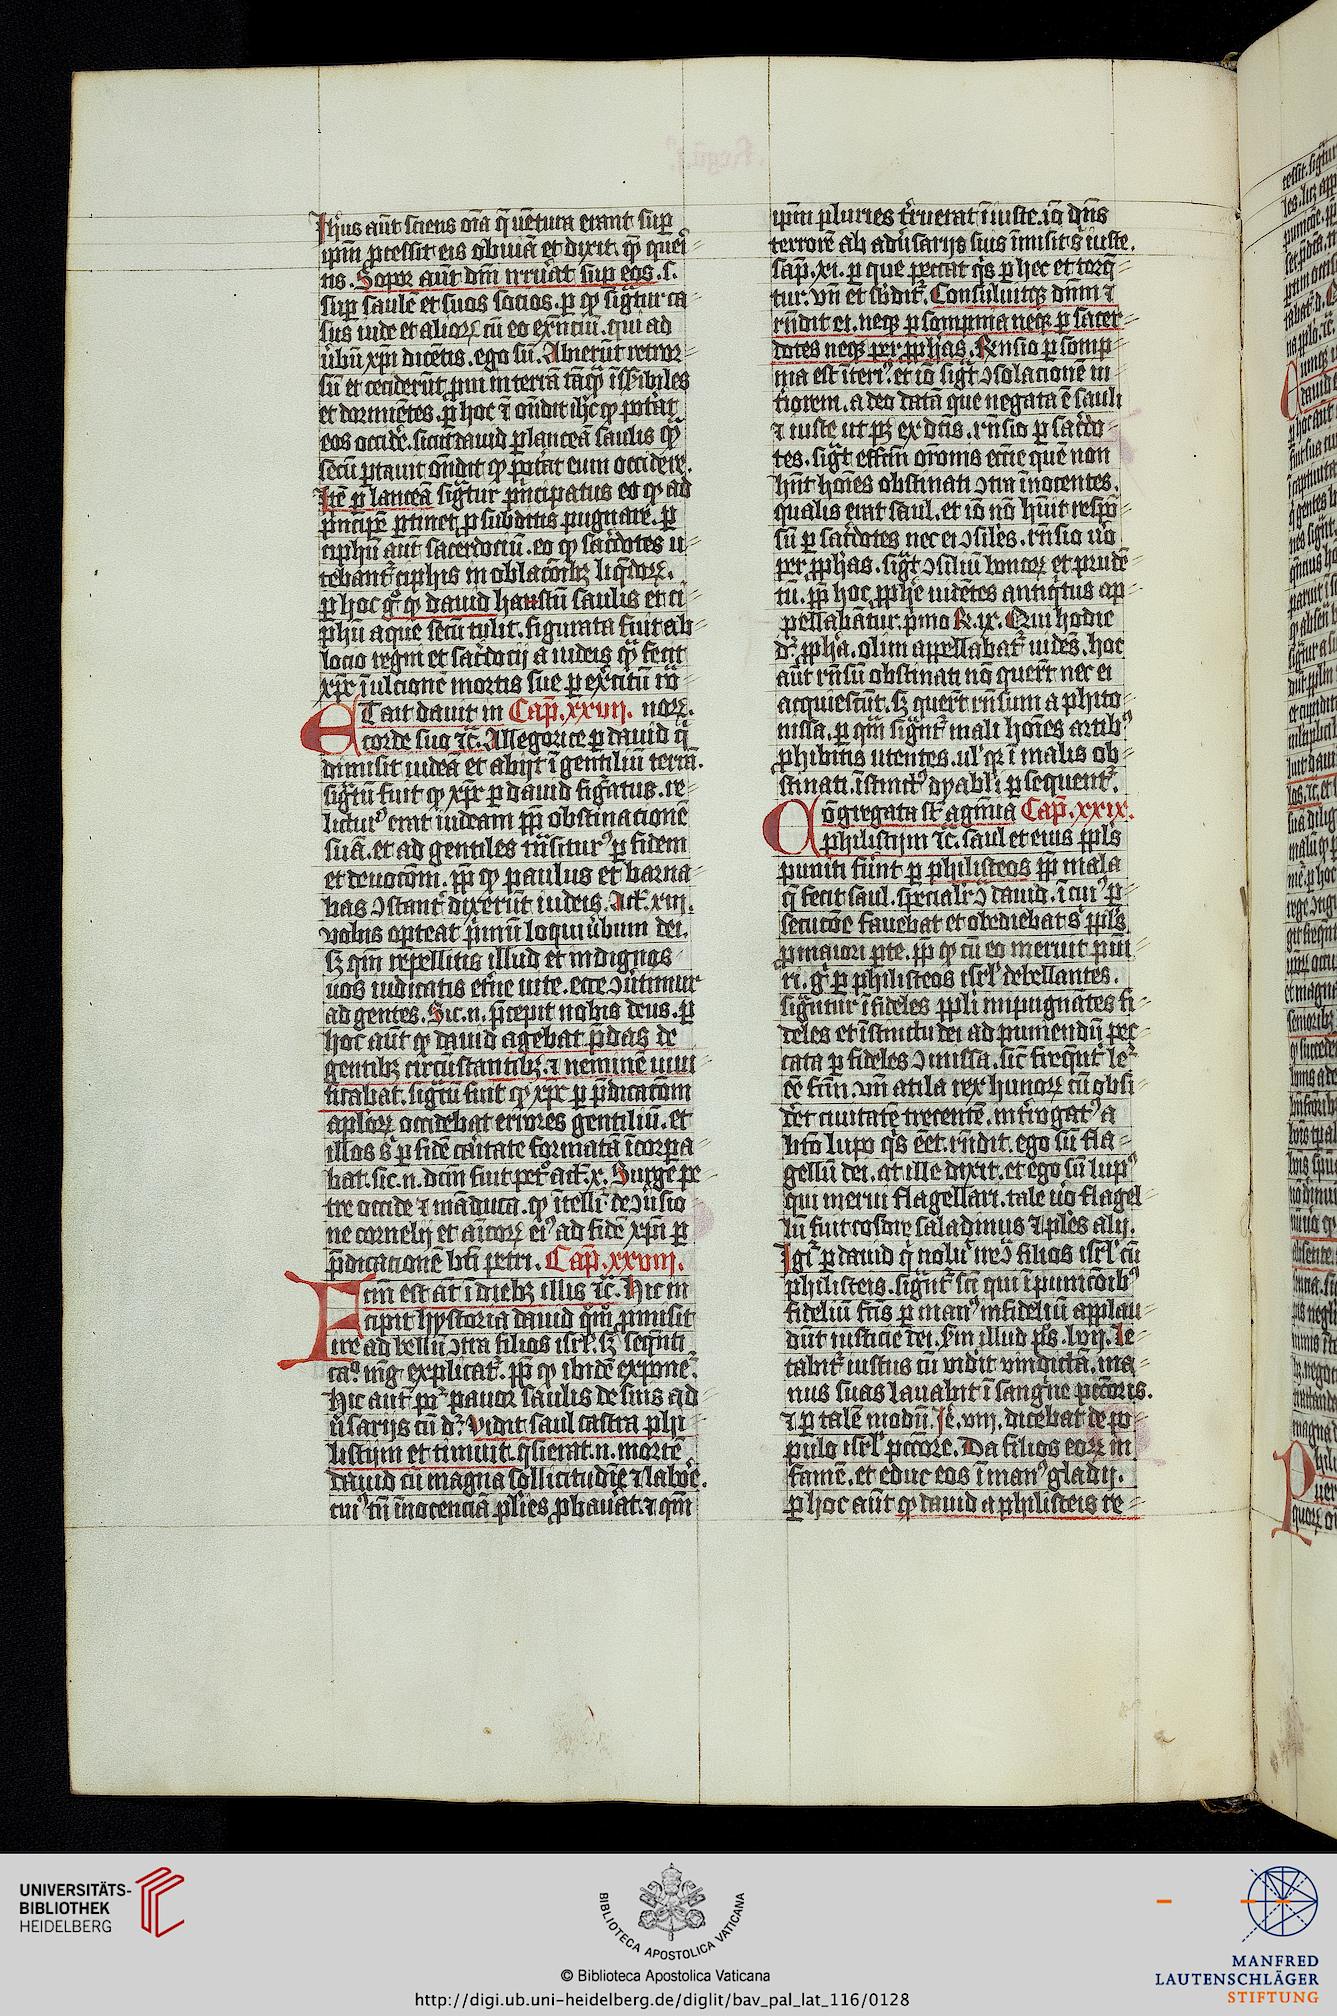 Ih's aūt sciens om̄a q̄ uētura erant sup
ip̄m p̄cessit eis obuiā et dixit. q̄ͥ queri
tis. Sopor aūt dn̄i irruāt sup eos. s.
sup saulē et suos socios. p qd sig̈tur ca
sus iude et alioꝝ cū eo exn̄ciū. qui ad
ūbū xpi dicētis. ego sū. Abierūt retror
sū et ceciderūt p̄ni in terrā tāq̄ īsēibiles
et dormiētes. p hoc ⁊ on̄dit ih̄c qd pot̄at
eos occid̄e. sicut dauid p lanceā saulis q̄ͫ
secū ptauit on̄dit qd pot̄at eum occidere.
Itē p lanceā sig̈tur p̄ncipatus eo qd ad
p̄ncipē ptinet p subditis pugnare. p
ciphū aūt sacerdociū. eo qd sac̄dotes u
tebant᷑ ciphis in oblac̄oībꝫ liq̄doꝝ.
p hoc g° qd dauid haustū saulis et ci
phū aque secū tulit. figurata fuit ab
lacio regni et sac̄docij a iudeis q̄ͫ fecit
xp̄c ī ulcionē mortis sue p exc̄itū ro
ET ait dauit in Cap̄. xxvij. noꝝ.
corde suo ⁊c̄. Allegorice p dauid q̄
dimisit iudeā et abijt ī gentiliū terrā.
sig̈tū fuit qd xp̄c p dauid fig̈atus. re
lictur᷒ erat iudeam pp̄ obstinacionē
suā. et ad gentiles trāsitur᷒ p fidem
et deuoc̄om. pp̄ qd paulus et barna
bas ɔstant̄ dixerūt iudeis. Act̄. xiij.
vobis opteat p̄mū loqui ūbum dei.
sꝫ qm̄ repellitis illud et indignos
uos iudicatis et̄ne uite. ecce ɔūtimur
ad gentes. Sic. n. p̄cepit nobis deus. p
hoc aūt qd dauid agebat p̄das de
gentibꝫ circūstantibꝫ. ⁊ neminē uiui
ficabat. sig̈tū fuit qd xp̄c p p̄dicac̄om
apl̄oꝝ occidebat errores gentiliū. et
illos s̄ p fidē caritate formatā īcorpa
bat. sic. n. dc̄m fuit pet᷑° act̄. x. Surge pe
tre occide ⁊ māduca. qd ītell̄r de ɔūsio
ne cornelij et am̄coꝝ ei᷒ ad fidē xp̄i p
p̄dicationē bt̄i petri. Cap̄. xxviij.
Fcm̄ est at̄ ī diebꝫ illis ⁊c̄. Hic in
cipit hystoria dauid q̄m͂ p̄misit
ire ad bellū ɔtra filios isrl̄. sꝫ seq̄nti
ca° mḡ explicat᷑. pp̄ qd ibidē exponet᷑.
Hic aūt po᷑ pauor saulis de suis ad
ūsarijs cū d᷑. Vidit saul castra phi
listijm et timuit. q̄sierat. n. mortē
dauid cū magna sollicitudīe ⁊ labōe.
cui᷒ tn̄ īnocenciā pl̄ies pbau̅at. ⁊ qm̄
ip̄m pluries t̄ruerat īiuste. iō dn̄s
terrorē ab adūsarijs suis īmisit s̄ iuste.
sap̄. xi. p que peccat q̄s p hec et torq̄
tur. vn̄ et sbdit᷑. Consuluitqꝫ dn̄m ⁊
rn̄dit ei. neqꝫ p sompnia neqꝫ p sacer
dotes neqꝫ per pp̄has. Rn̄sio p somp
nia est īteri᷒. et iō sig̈t ɔsolacionē in
tiorem. a deo datā que negata ē sauli
⁊ iuste ut pꝫ ex dc̄is. rn̄sio p sac̄do
tes. sig̈t effcm̄ or̄onis eccīe que non
hn̄t hoīes obstinati ɔtra inocentes.
qualis erat saul. et iō nō hn̄it respō
sū p sac̄dotes nec ei ɔsiles. rn̄sio ūo
per pp̄has. sig̈t ɔsiliū bonoꝝ et prudē
tū. pp̄ hoc pp̄he uidētes antiq̄tus ap
pellabāntur. p̄mo R. ix. Qui hodie
d᷑. pp̄ha. olim appellabat᷑ uidēs. hoc
aūt rn̄sū obstinati nō quert̄ nec ei
acquiescūt. sꝫ quert̄ rn̄sum a phito
nissa. p qm̄ sig̈nt᷑ mali hoīes artib᷒
phibitis utentes. ul' q̄r ī malis ob
stinati. īstinct᷒ dyabl'i p sequent᷑.
Cōgregata st̄ agmīa Cap̄. xxix.
philistijm ⁊c̄. saul et eius ppl̄s
puniti fūnt p philisteos pp̄ mala
q̄ fecit saul. sp̄cialr̄ ɔ dauid. ī cui᷒ p
secuc̄oe fauebat et obediebat s̄ ppl̄s
p maiori pte. pp̄ qd cū eo meruit pui
ri. g° p philisteos isrl̄ debellantes.
sig̈ntur īfideles ppl̄i inpugnātes fi
deles et īstinctu dei ad puniendū pec
cata p fideles ɔmissa. sic̄ freq̄nt᷑ le᷑
ēe fcm̄. vn̄ atila rex hunoꝝ cū obsi
det̄ ciuitatē trecentē. int̄rogat᷒ a
bto̅ lupo q̄s eēt. rn̄dit. ego sū fla
gellū dei. at ille dixit. et ego sū lup᷒
qui merui flagellari. tale ūo flagel
lū fuit cosdre saladinus ⁊ pl̄es alij.
Igi᷑ p dauid q̄ noluit᷑ ire ɔ filios isrl̄ cū
philisteis. sig̈nt᷑ sc̄i qui ī punic̄oib᷒
fideliū fc̄is p man᷒ infideliū applau
dūt iusticie dei. sm̄ illud ps̄. lvij. Le
tabit᷑ iustus cū vid̄it vindictā. ma
nus suas lauabit ī sang̈ne pctōris.
⁊ p talē modū Je̅. viij. dicebat de po
pulo isrl̄ pctōre. Da filios eoꝝ in
famē. et educ eos ī man᷒ gladij.
p hoc aūt qd dauid a philisteis re
UNIVERSITÄTS-
BIBLIOTHEK
HEIDELBERG
BIBLIOTECA APOSTOLICA VATICANA
© Biblioteca Apostolica Vaticana
http://digi.ub.uni-heidelberg.de/diglit/bav_pal_lat_116/0128
MANFRED
LAUTENSCHLÄGER
STIFTUNG